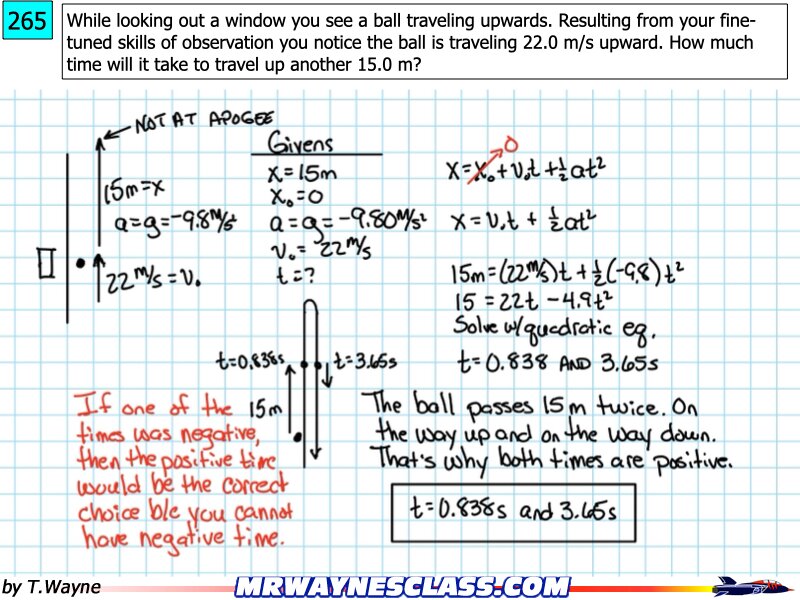 265
While looking out a window you see a ball traveling upwards. Resulting from your fine-
tuned skills of observation you notice the ball is traveling 22.0 m/s upward. How much
time will it take to travel up another 15.0 m?
NOT AT APOGEE
15m=x
a=g=-9.8m/s²
22m/s=v₀
Givens
x=15m
x₀=0
a=g=-9.80m/s²
v₀=22m/s
t=?
0
x=x₀+v₀t+½at²
x=v₀t+½at²
15m=(22m/s)t+½(-9.8)t²
15=22t-4.9t²
Solve w/quadratic eq.
t=0.838 AND 3.65s
t=0.838s
t=3.65s
15m
If one of the
times was negative,
then the positive time
would be the correct
choice b/c you cannot
have negative time.
The ball passes 15m twice. On
the way up and on the way down.
That's why both times are positive.
t=0.838s and 3.65s
by T.Wayne
MRWAYNESCLASS.COM